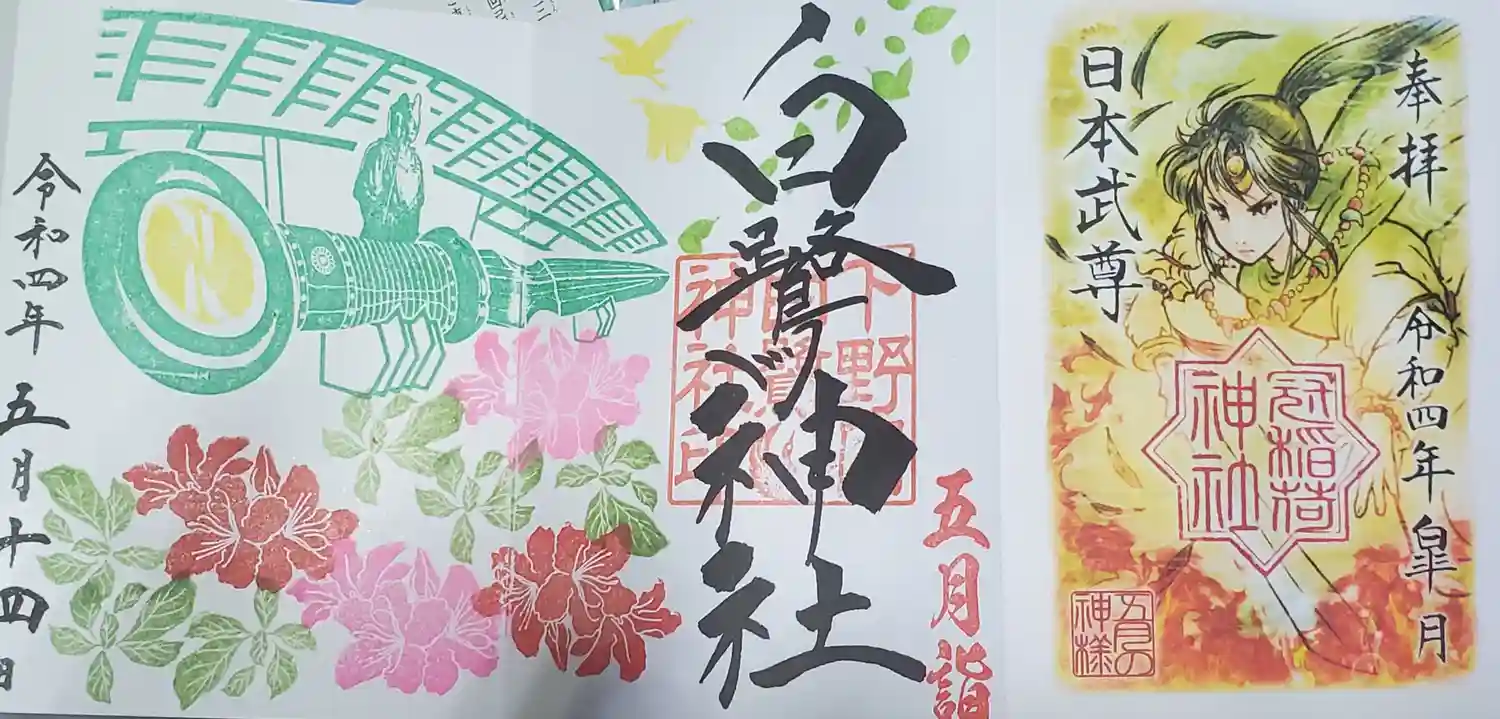 奉拝
令和四年 皐月
冠稲荷
神社
日本武尊
五月の
神様
五月詣
白鷺神社
下野
神社印
令和四年 五月十四日